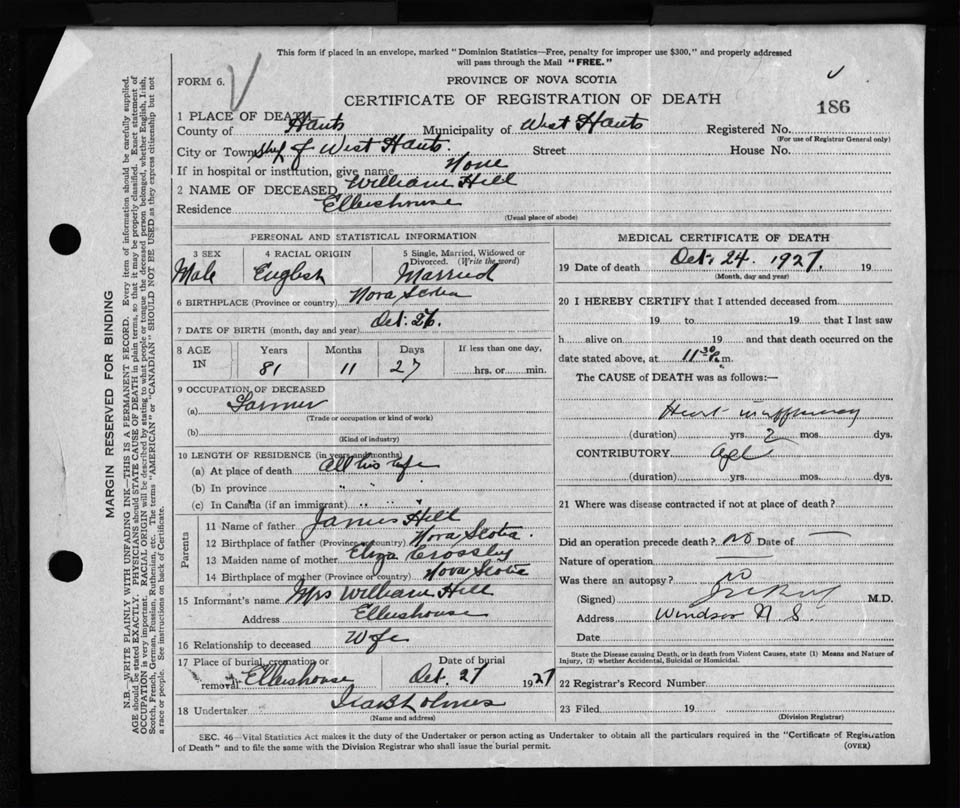 This form if placed in an envelope, marked "Dominion Statistics—Free, penalty for improper use $300," and properly addressed
will pass through the Mail "FREE."
FORM 6.
PROVINCE OF NOVA SCOTIA
CERTIFICATE OF REGISTRATION OF DEATH
186
1 PLACE OF DEATH
County of Hants Municipality of West Hants Registered No.
(For use of Registrar General only)
City or Town of West Hants. Street House No.
If in hospital or institution, give name None
2 NAME OF DECEASED William Hill
Residence Ellershouse
(Usual place of abode)
PERSONAL AND STATISTICAL INFORMATION
3 SEX 4 RACIAL ORIGIN 5 Single, Married, Widowed or
Divorced. (Write the word)
Male English Married
6 BIRTHPLACE (Province or country) Nova Scotia
7 DATE OF BIRTH (month, day and year) Oct. 26.
8 AGE IN Years Months Days If less than one day,
81 11 27 hrs. or min.
9 OCCUPATION OF DECEASED
(a) Farmer
(Trade or occupation or kind of work)
(b)
(Kind of industry)
10 LENGTH OF RESIDENCE (in years and months)
(a) At place of death All his life
(b) In province " " "
(c) In Canada (if an immigrant) " " "
Parents
11 Name of father James Hill
12 Birthplace of father (Province or country) Nova Scotia.
13 Maiden name of mother Eliza Crossley
14 Birthplace of mother (Province or country) Nova Scotia
15 Informant's name Mrs William Hill
Address Ellershouse
16 Relationship to deceased Wife
17 Place of burial, cremation or Date of burial
removal Ellershouse Oct. 27 1927
18 Undertaker
(Name and address)
MEDICAL CERTIFICATE OF DEATH
19 Date of death Oct. 24. 1927. 19
(Month, day and year)
20 I HEREBY CERTIFY that I attended deceased from
19 to 19 that I last saw
h alive on 19 and that death occurred on the
date stated above, at 11 30 P.m.
The CAUSE of DEATH was as follows:—
Heart insufficiency
(duration) yrs. 2 mos. dys.
CONTRIBUTORY Age
(duration) yrs. mos. dys.
21 Where was disease contracted if not at place of death?
Did an operation precede death? no Date of —
Nature of operation —
Was there an autopsy? no
(Signed) M.D.
Address Windsor N.S.
Date
State the Disease causing Death, or in death from Violent Causes, state (1) Means and Nature of
Injury, (2) whether Accidental, Suicidal or Homicidal.
22 Registrar's Record Number
23 Filed 19
(Division Registrar)
SEC. 46—Vital Statistics Act makes it the duty of the Undertaker or person acting as Undertaker to obtain all the particulars required in the "Certificate of Registration
of Death" and to file the same with the Division Registrar who shall issue the burial permit.
(OVER)
MARGIN RESERVED FOR BINDING
N.B.—WRITE PLAINLY WITH UNFADING INK—THIS IS A PERMANENT RECORD. Every item of information should be carefully supplied.
AGE should be stated EXACTLY. PHYSICIANS should STATE CAUSE OF DEATH in plain terms, so that it may be properly classified. Exact statement of
OCCUPATION is very important. RACIAL ORIGIN will be described by stating to what people or tongue the deceased person belonged, whether English, Irish,
Scotch, French, German, Russian, Ruthenian, etc. The terms "AMERICAN" or "CANADIAN" SHOULD NOT BE USED as they express citizenship but not
a race or people. See instructions on back of Certificate.